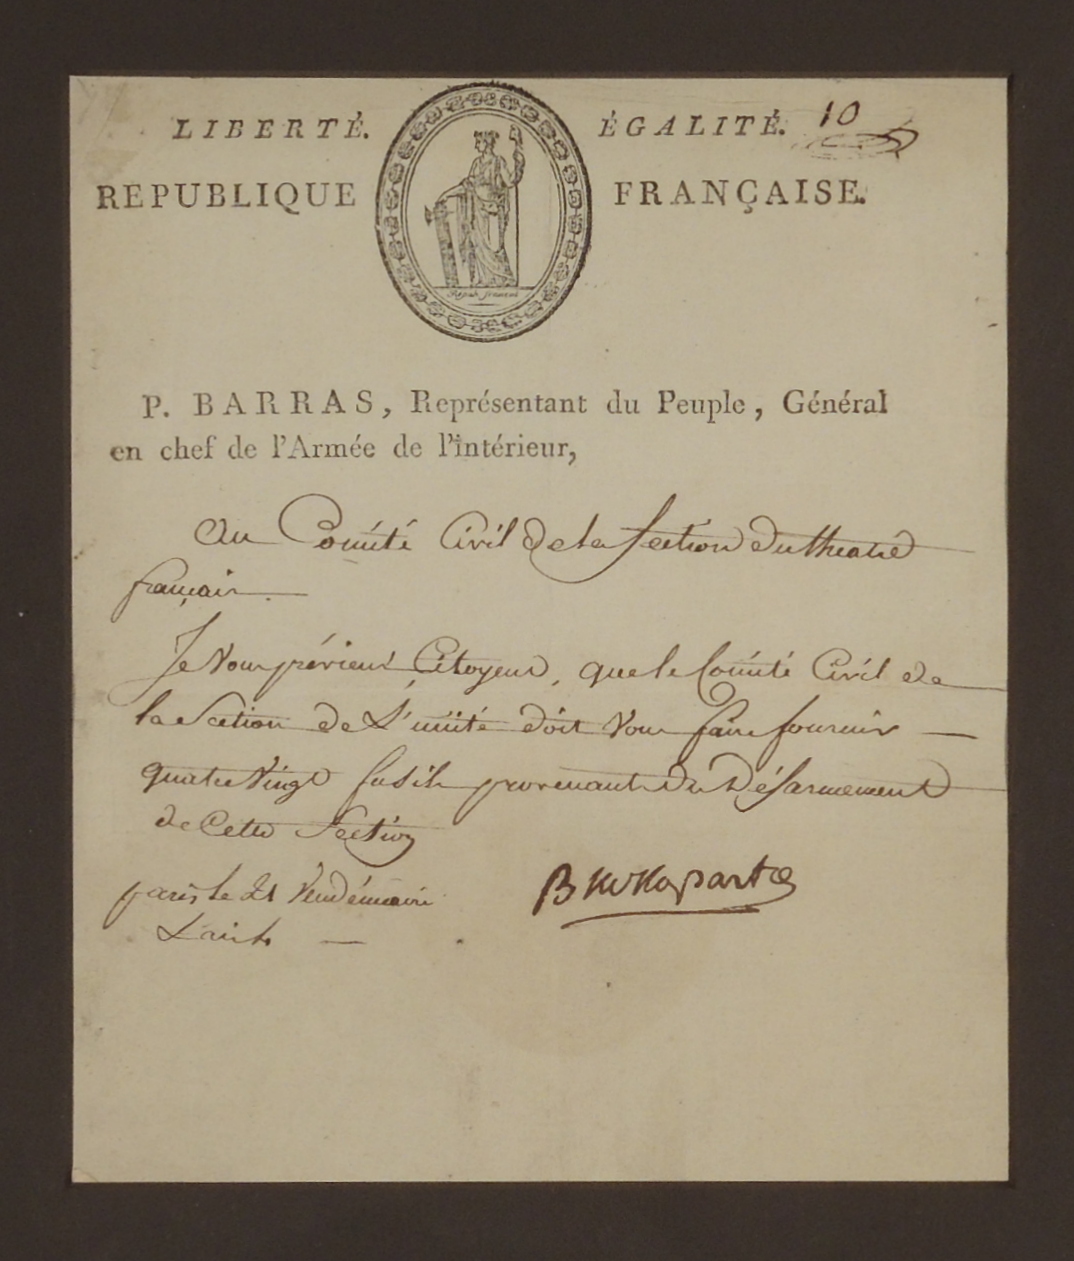 LIBERTÉ. ÉGALITÉ. 10
REPUBLIQUE FRANÇAISE.
P. BARRAS, Représentant du Peuple, Général
en chef de l'Armée de l'intérieur,
Au Comité Civil de la Section du theatre
français
Je vous préviens, Citoyens, que le Comité Civil de
la Section de L'unité doit vous faire fournir
quatre vingt fusils provenant du Désarmement
de Cette Section
paris le 21 Vendémiaire
L'an 4.
Buonaparte